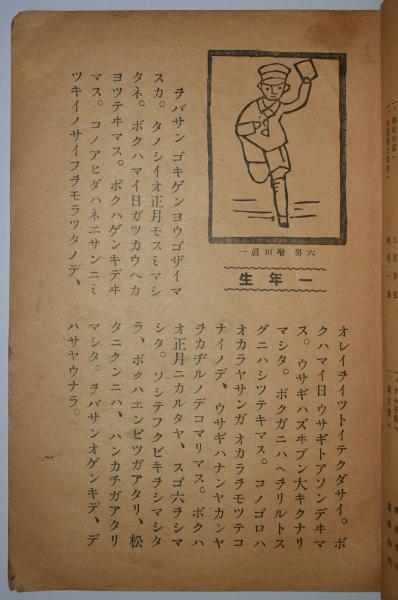 六男 增田眞一
一年生
ヲバサン ゴキゲンヨウゴザイマ
スカ。タノシイオ正月モスミマシ
タネ。ボクハマイ日ガツカウヘカ
ヨツテヰマス。ボクハゲンキデヰ
マス。コノアヒダハネエサンニミ
ツキイノサイフヲモラツタノデ、
オレイチイツトイテクダサイ。ボ
クハマイ日ウサギトアソンデヰマ
ス。ウサギハズヰブン大キクナリ
マシタ。ボクガニハヘチリルトス
グニハシツテキマス。コノゴロハ
オカラヤサンガ オカラヲモツテコ
ナイノデ、ウサギハナンヤカンヤ
ヲカヂルノデコマリマス。ボクハ
オ正月ニカルタヤ、スゴ六ヲシマ
シタ。ソシテフクビキヲシマシタ
ラ、ボクハエンピツガアタリ、松
タニクンニハ、ハンカチガアタリ
マシタ。ヲバサンオゲンキデ、デ
ハサヤウナラ。